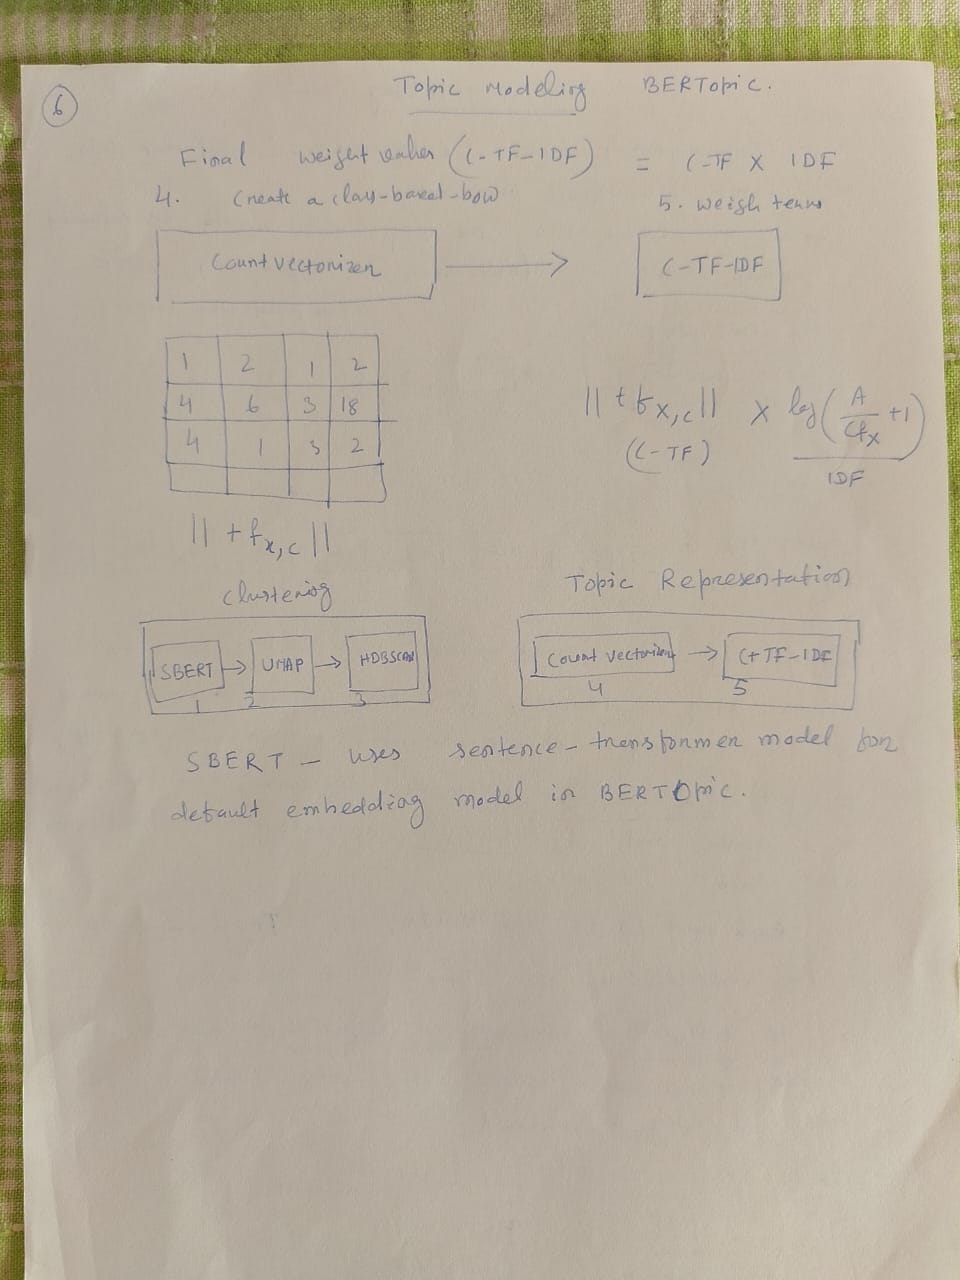 6
Topic Modeling BERTopic.
Final weight values (C-TF-IDF) = C-TF X IDF
4. Create a class-based-bow 5. weigh terms
Count Vectorizer → C-TF-IDF
1 2 1 2
4 6 3 18
4 1 3 2
|| tf x,c || x log( A / cfx +1)
(C-TF) IDF
|| tf x,c ||
Clustering Topic Representation
SBERT → UMAP → HDBSCAN Count Vectorizer → C+TF-IDF
1 2 3 4 5
SBERT - uses sentence-transformer model for
default embedding model in BERTOpic.